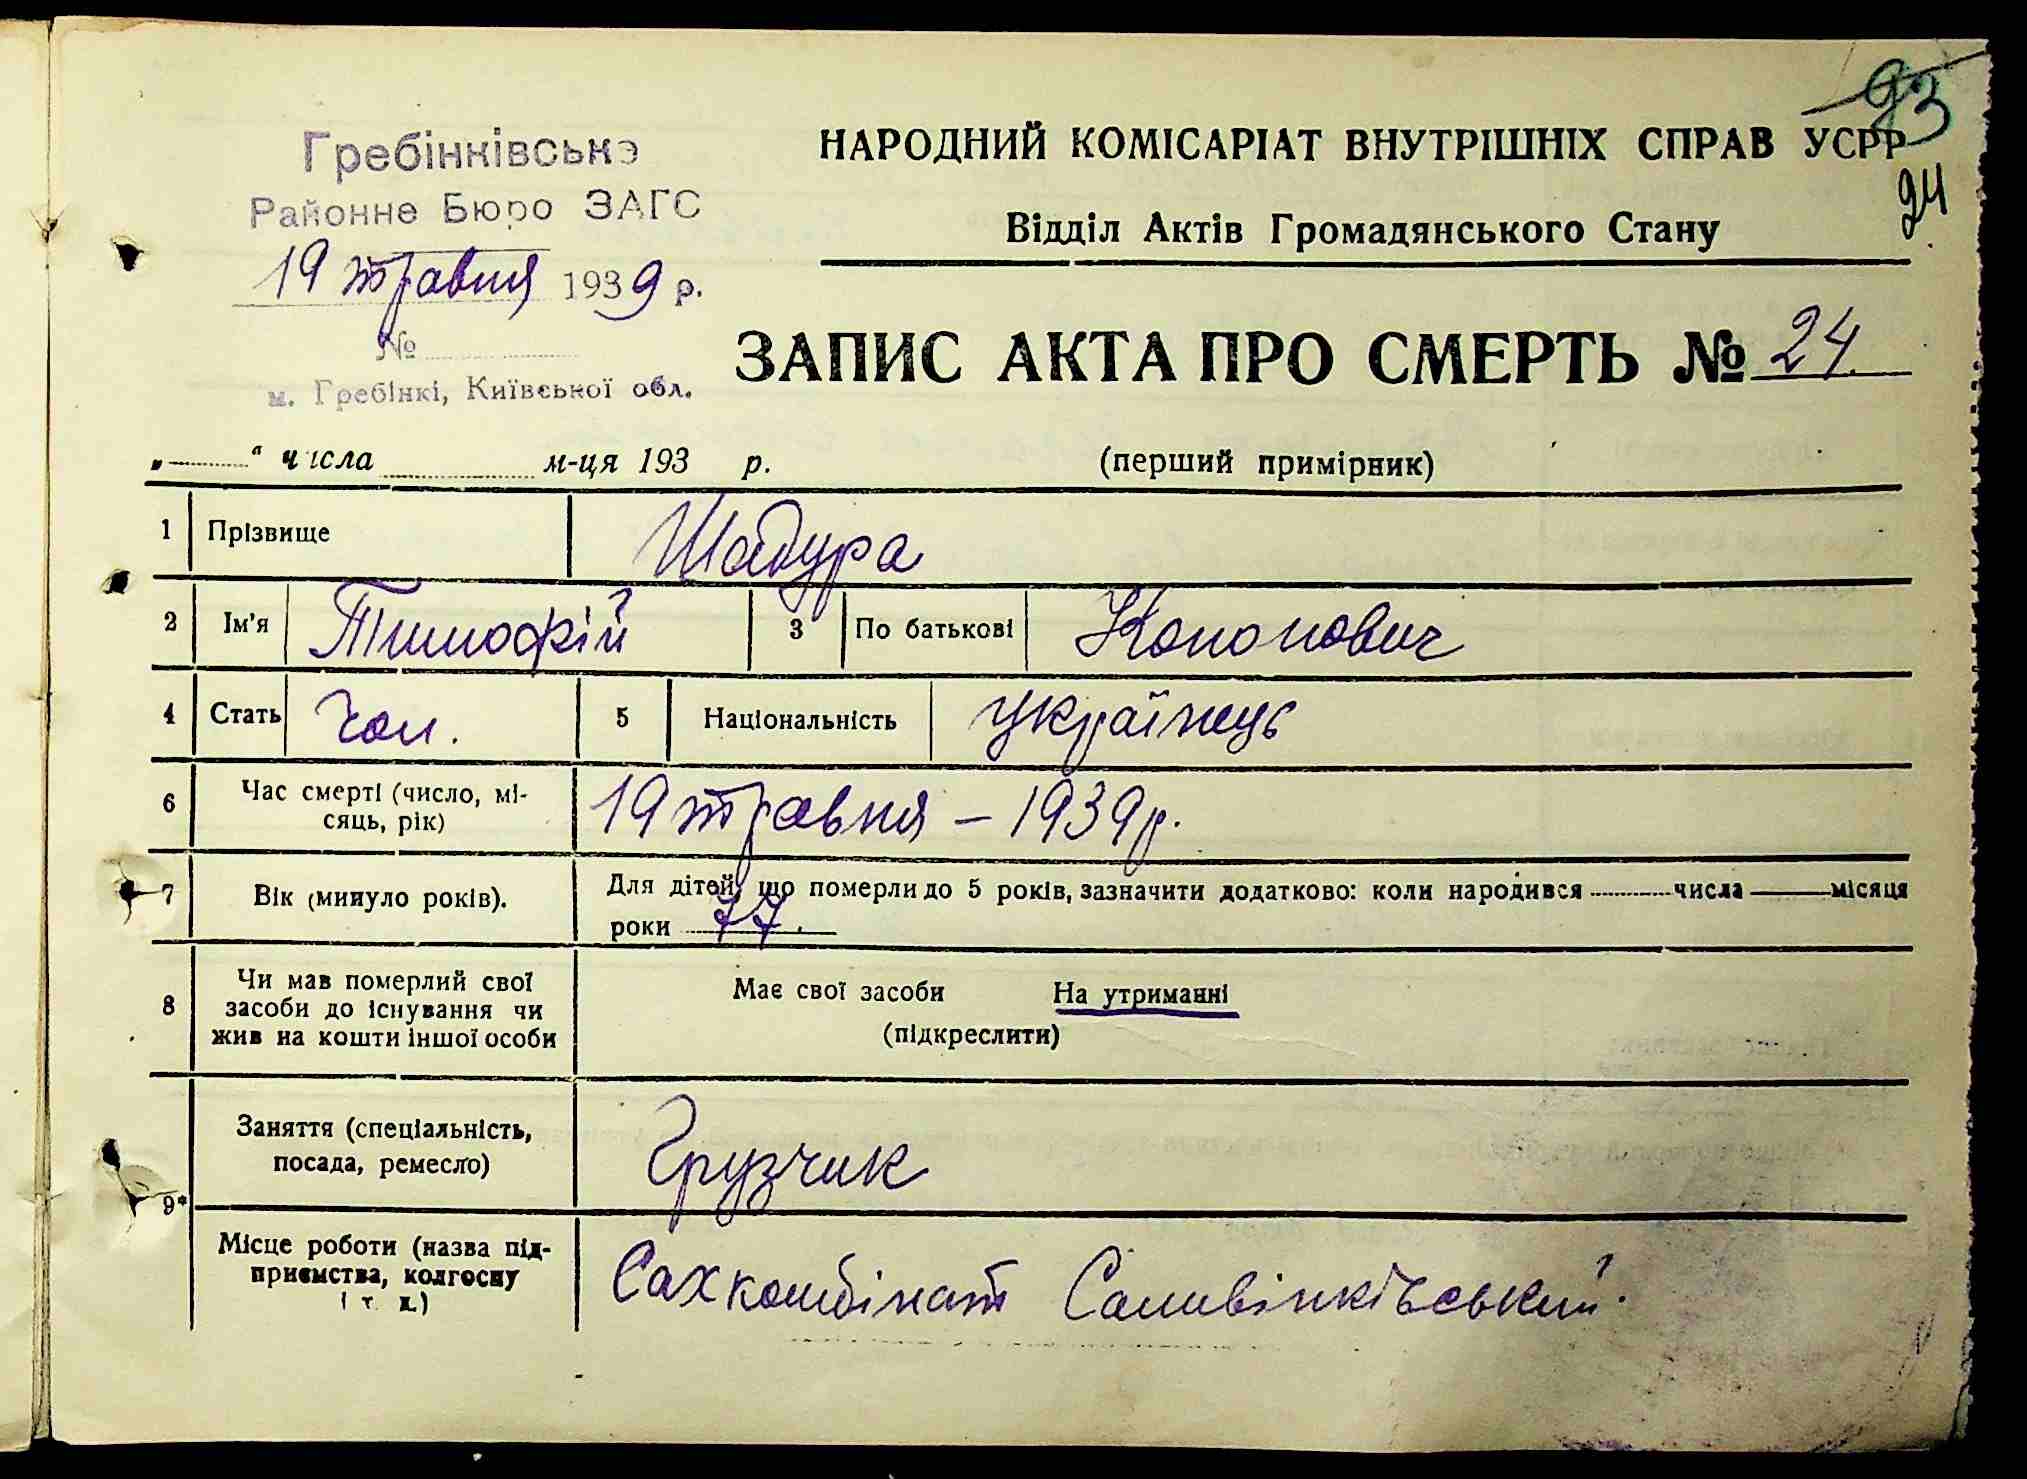 93
24
Гребінківське
Районне Бюро ЗАГС
19 травня 1939 р.
№
м. Гребінкі, Київської обл.
НАРОДНИЙ КОМІСАРІАТ ВНУТРІШНІХ СПРАВ УСРР
Відділ Актів Громадянського Стану
ЗАПИС АКТА ПРО СМЕРТЬ № 24.
„ “ числа м-ця 193 р. (перший примірник)
1 Прізвище Шадура
2 Ім'я Тимофій 3 По батькові Кононович
4 Стать Чол. 5 Національність Українець
6 Час смерті (число, мі-
сяць, рік) 19 травня – 1939 р.
7 Вік (минуло років). Для дітей, що померли до 5 років, зазначити додатково: коли народився числа місяця
роки 77.
8 Чи мав померлий свої
засоби до існування чи
жив на кошти іншої особи
Має свої засоби На утриманні
(підкреслити)
9* Заняття (спеціальність,
посада, ремесло) Грузчик
Місце роботи (назва під-
приємства, колгоспу
і т. д.) Сахкомбінат Саливінківський.